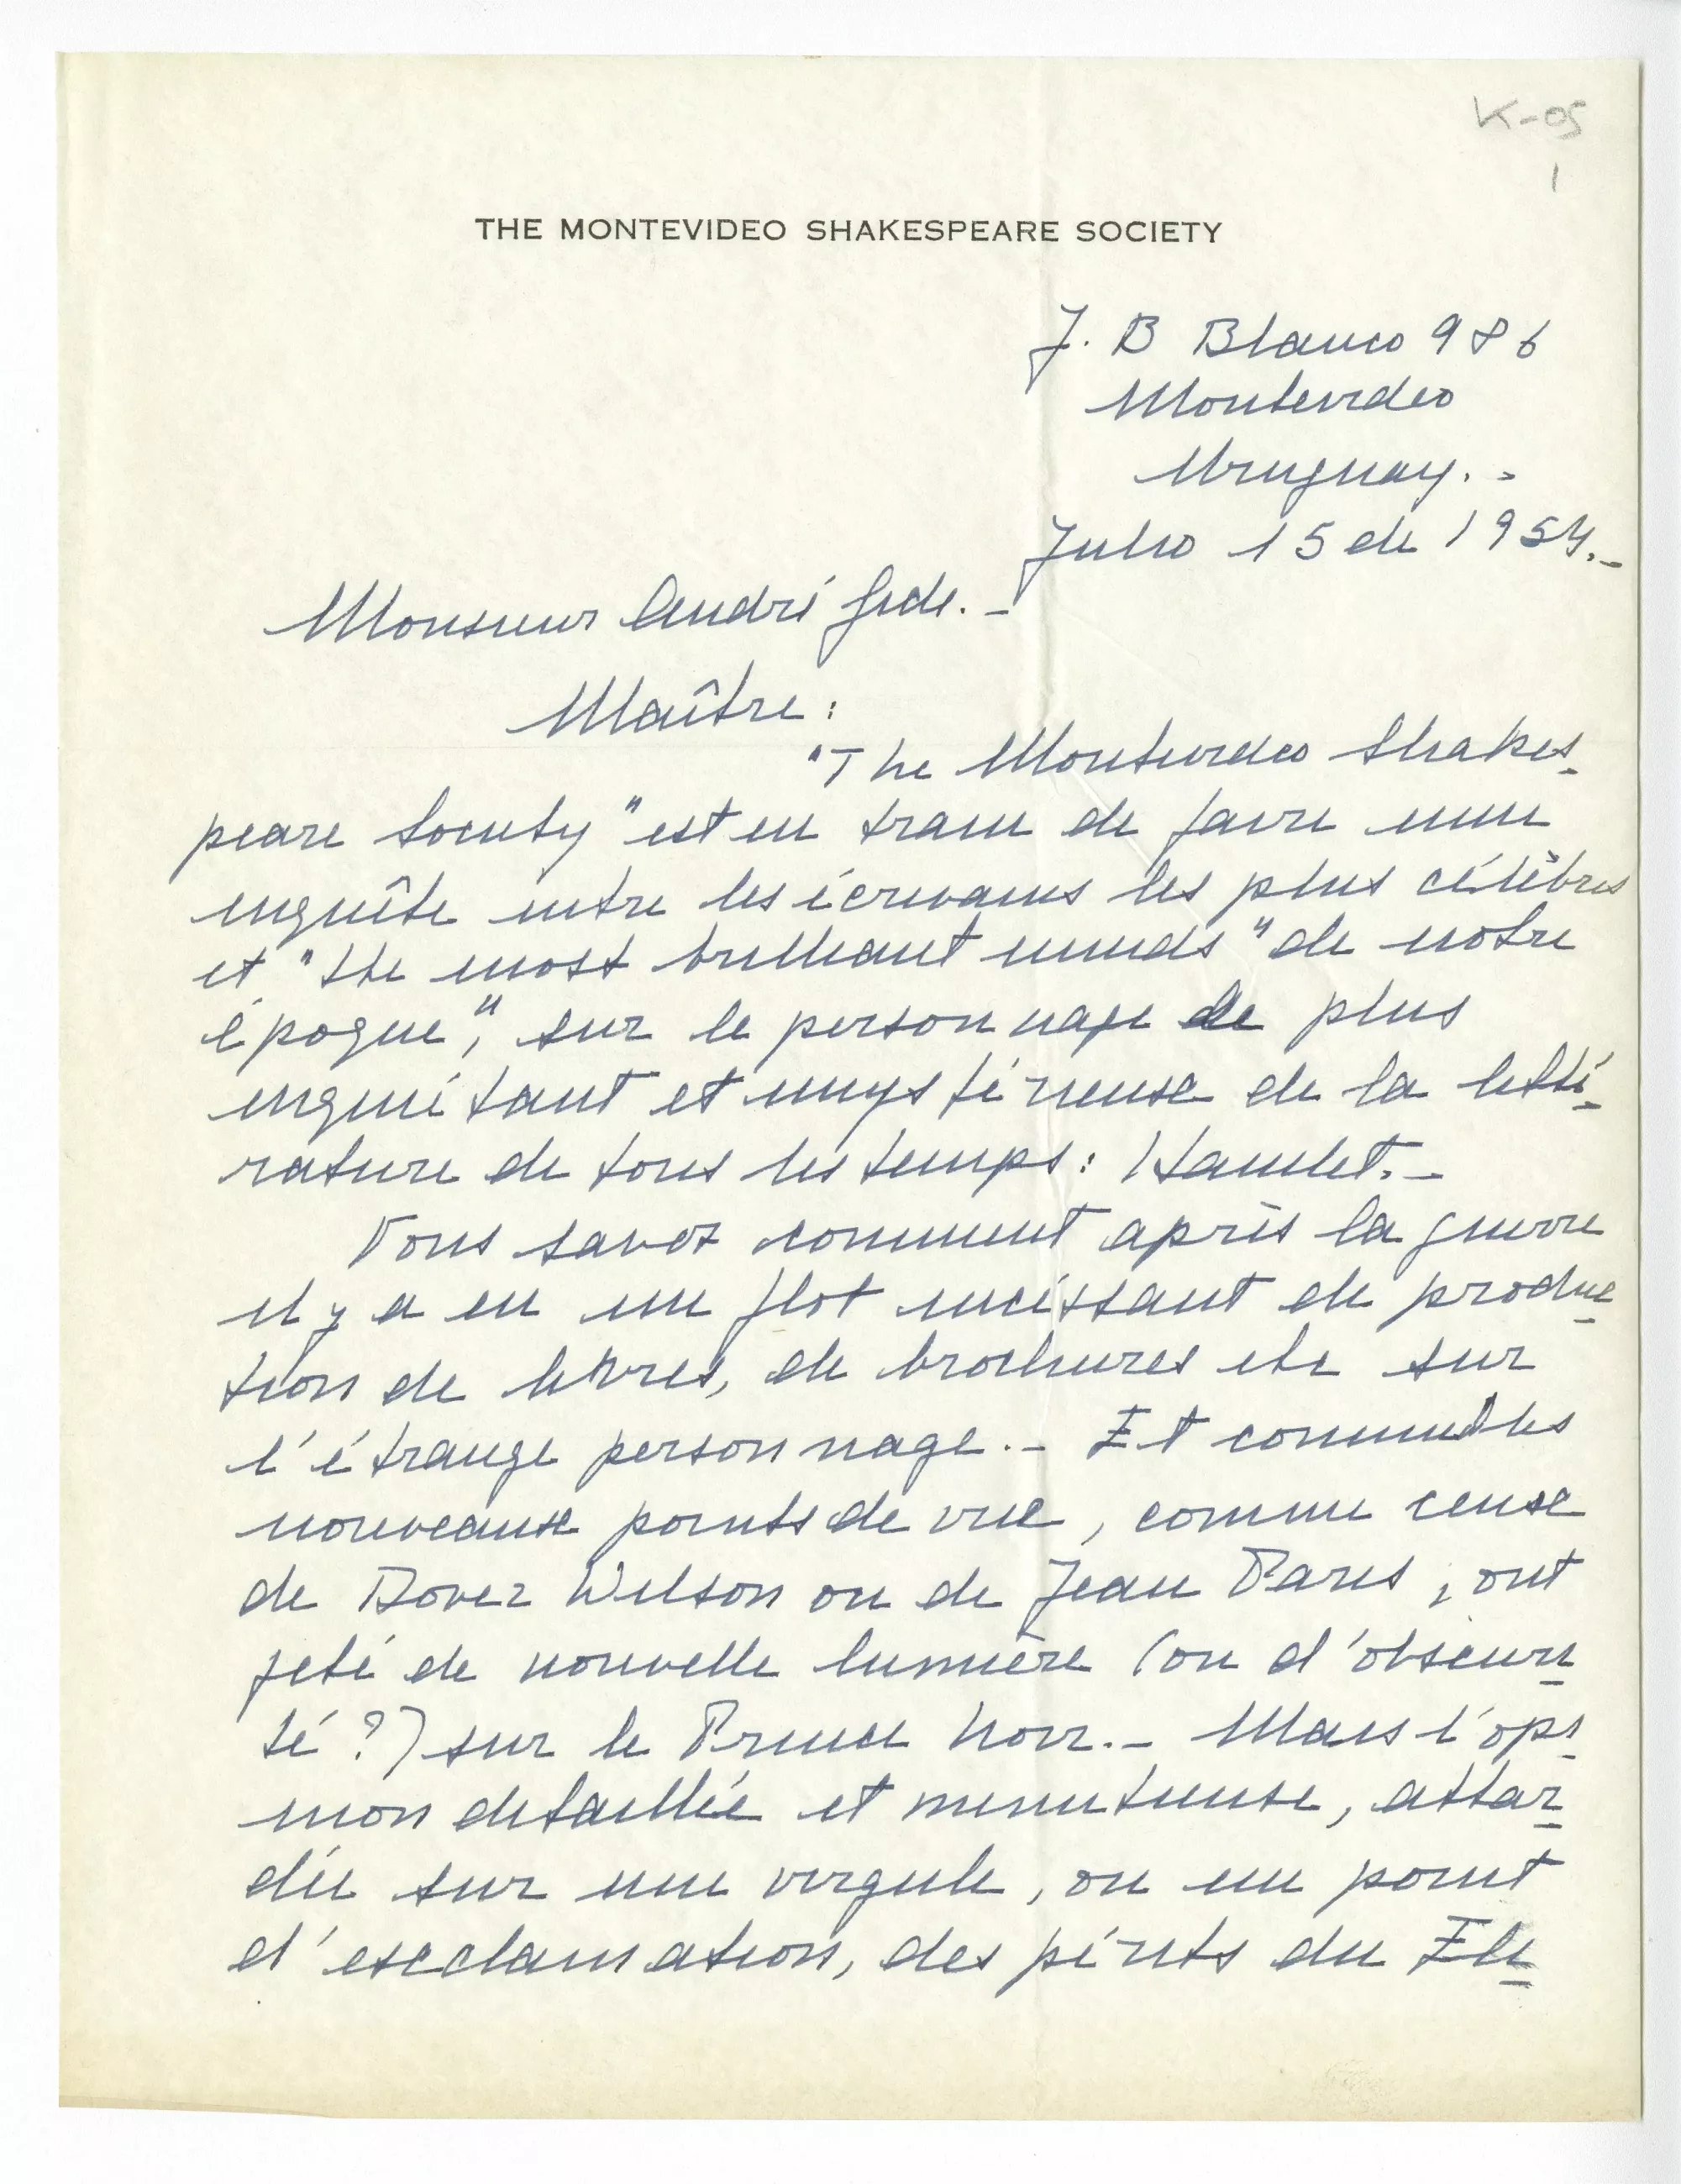 K-05
1
THE MONTEVIDEO SHAKESPEARE SOCIETY
J. B Blanco 986
Montevideo
Uruguay. -
Julio 15 de 1954.-
Monsieur André Gide. -
Maître :
"The Montevideo Shakes-
peare Society" est en train de faire une
enquête entre les écrivains les plus célèbres
et "the most brilliant minds" de notre
époque," sur le personnage le plus
inquiétant et mystérieuse de la litté-
rature de tous les temps : Hamlet. -
Vous savez comment après la guerre
il y a eu un flot incéssant de produc-
tion de livres, de brochures etc sur
l'étrange personnage. - Et comme les
nouveaux points de vue, comme ceux
de Dover Wilson ou de Jean Paris, ont
jeté de nouvelle lumière (ou d'obscuri-
té ?) sur le Prince Noir. - Mais l'opi-
nion detaillée et minutieuse, attar-
dée sur une virgule, ou un point
d'exclamation, des périts du Eli-